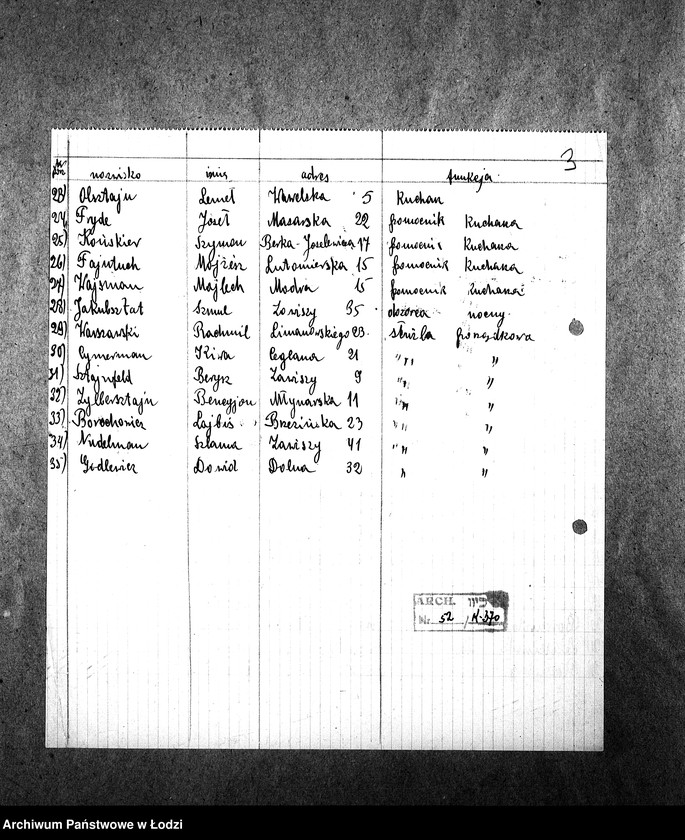 3
nazwisko imię adres funkcja
23) Olsztajn Lemel Wawelska 5 Kucharz
24) Fryde Josef Masarska 22 pomocnik kucharza
25) Końskier Szymon Berka-Joselewicza 17 pomocnik kucharza
26) Fajntuch Mojżesz Lutomierska 15 pomocnik kucharza
27) Wajsman Majlech Modra 15 pomocnik kucharza
28) Jakubsztat Szmul Zawiszy 35 dozorca nocny
29) Warszawski Rachmil Limanowskiego 23 służba porządkowa
30) Cymerman Kiwa Ceglana 21 " "
31) Sztajnfeld Berysz Zawiszy 9 " "
32) Zylbersztajn Bencyjon Młynarska 11 " "
33) Borochowicz Lajbuś Brzezińska 23 " "
34) Nudelman Szlama Zawiszy 41 " "
35) Godlewicz Dawid Dolna 32 " "
ARCH.
Nr. 52 / K-370
Archiwum Państwowe w Łodzi